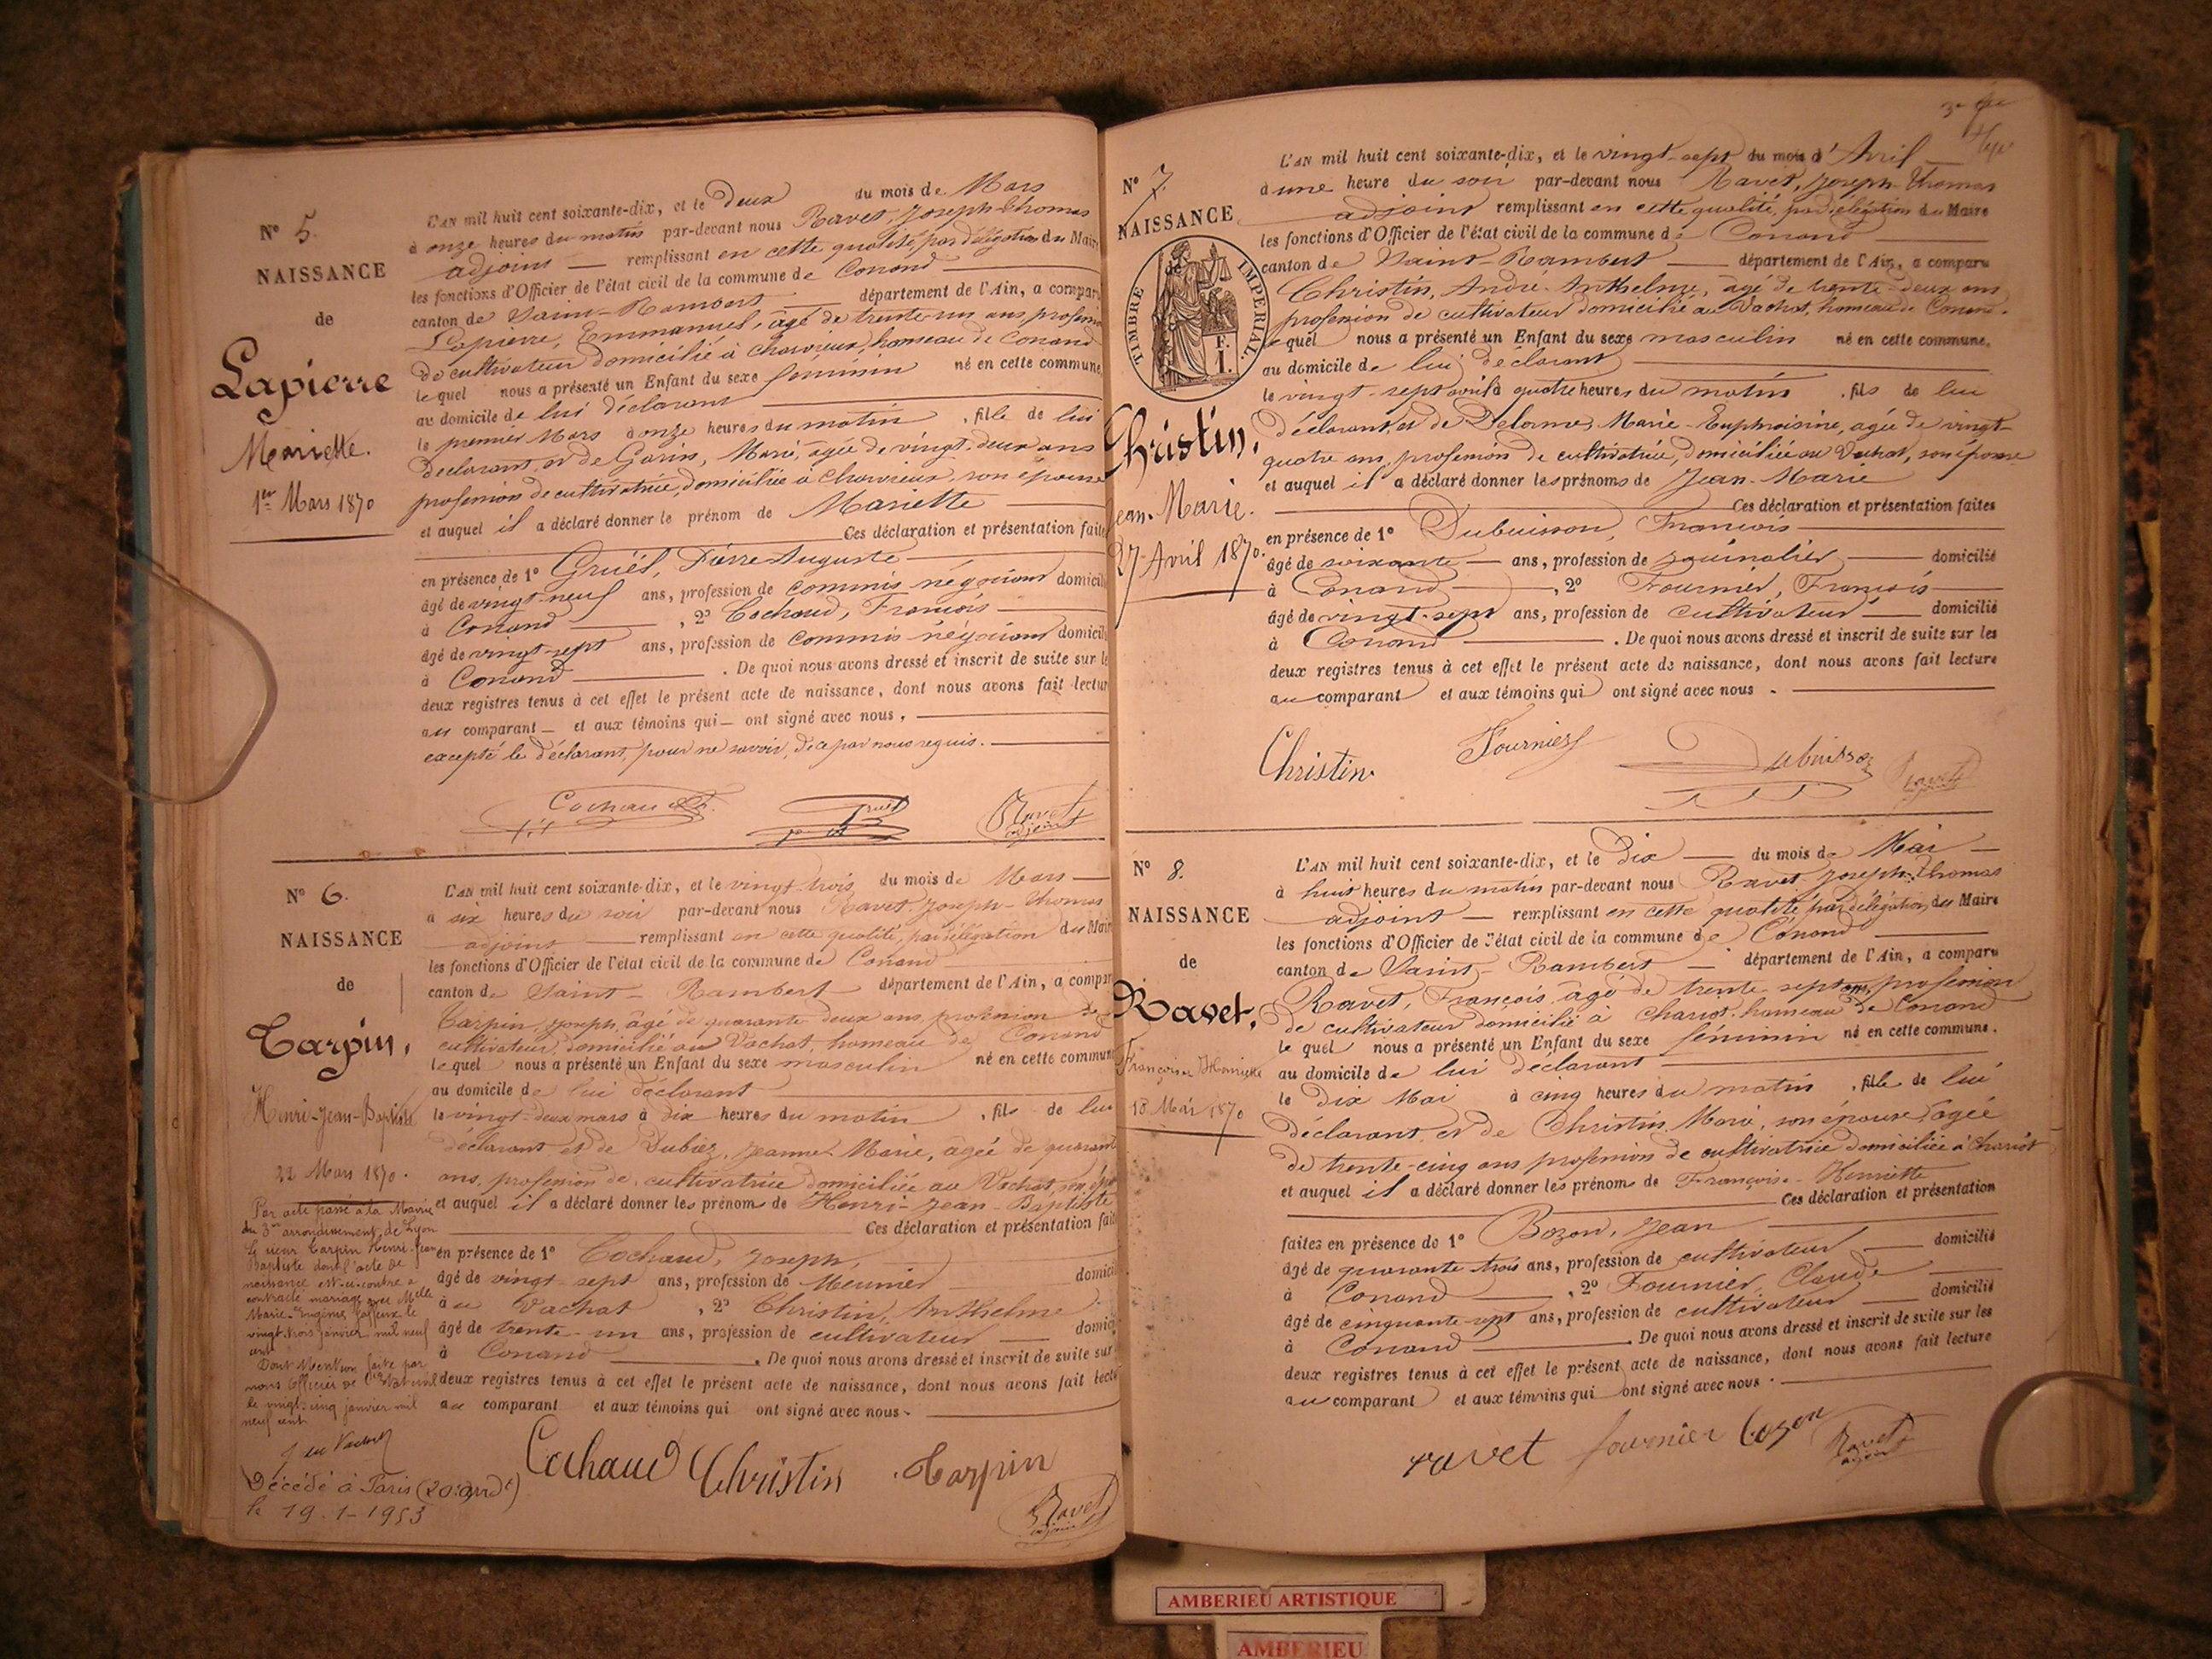 N° 5.
NAISSANCE
de
Lapierre
Mariette.
1er Mars 1870
L'AN mil huit cent soixante-dix, et le Deux du mois de Mars
à onze heures du matin par-devant nous Ravet, Joseph-Thomas
adjoint — remplissant en cette qualité, par délégation du Maire
les fonctions d'Officier de l'état civil de la commune de Conand
canton de Saint-Rambert département de l'Ain, a comparu
Lapierre, Emmanuel, âgé de trente-un ans, profession
de cultivateur domicilié à Charvieux, hameau de Conand
lequel nous a présenté un Enfant du sexe féminin né en cette commune,
au domicile de lui déclarant
le premier Mars à onze heures du matin, fille de lui
déclarant, et de Gorin, Marie, âgée de vingt-deux ans
profession de cultivatrice, domiciliée à Charvieux, son épouse
et auquel il a déclaré donner le prénom de Mariette
Ces déclaration et présentation faites
en présence de 1° Gruël, Pierre Auguste
âgé de vingt-neuf ans, profession de commis négociant domicilié
à Conand, 2° Cochaud, François
âgé de vingt-sept ans, profession de commis négociant domicilié
à Conand. De quoi nous avons dressé et inscrit de suite sur les
deux registres tenus à cet effet le présent acte de naissance, dont nous avons fait lecture
au comparant — et aux témoins qui — ont signé avec nous,
excepté le déclarant, pour ne savoir, de ce par nous requis.
Cochaud F. Gruel Ravet
adjoint
N° 6.
NAISSANCE
de
Tarpin,
Henri-Jean-Baptiste
22 Mars 1870.
L'AN mil huit cent soixante-dix, et le vingt-trois du mois de Mars
à six heures du soir par-devant nous Ravet, Joseph-Thomas
adjoint remplissant en cette qualité, par délégation du Maire
les fonctions d'Officier de l'état civil de la commune de Conand
canton de Saint-Rambert département de l'Ain, a comparu
Tarpin, Joseph, âgé de quarante deux ans, profession de
cultivateur, domicilié au Vachat, hameau de Conand
lequel nous a présenté un Enfant du sexe masculin né en cette commune
au domicile de lui déclarant
le vingt-deux mars à dix heures du matin, fils de lui
déclarant et de Dubiez, Jeanne-Marie, âgée de quarante
ans, profession de cultivatrice domiciliée au Vachat, son épouse
et auquel il a déclaré donner les prénoms de Henri-Jean-Baptiste
Ces déclaration et présentation faites
en présence de 1° Cochaud, Joseph,
âgé de vingt-sept ans, profession de Meunier domicilié
au Vachat, 2° Christin, Anthelme
âgé de trente-un ans, profession de cultivateur — domicilié
à Conand. De quoi nous avons dressé et inscrit de suite sur
deux registres tenus à cet effet le présent acte de naissance, dont nous avons fait lecture
au comparant et aux témoins qui ont signé avec nous.
Par acte passé à la Mairie
du 3me arrondissement de Lyon
le sieur Tarpin Henri-Jean
Baptiste dont l'acte de
naissance est ci-contre a
contracté mariage avec Melle
Marie-Eugénie le
vingt-trois janvier mil neuf
cent
Dont Mention faite par
nous Officier de l'Etat civil
le vingt-cinq janvier mil
neuf cent
Décédé à Paris (20e arrdt)
le 19-1-1953
Cochaud Christin Tarpin
Ravet
adjoint
N° 7.
NAISSANCE
de
TIMBRE IMPERIAL.
F.
I.
Christin,
Jean-Marie.
27 Avril 1870.
L'AN mil huit cent soixante-dix, et le vingt-sept du mois d'Avril
à une heure du soir par-devant nous Ravet, Joseph-Thomas
adjoint remplissant en cette qualité, par délégation du Maire
les fonctions d'Officier de l'état civil de la commune de Conand
canton de Saint-Rambert — département de l'Ain, a comparu
Christin, André-Anthelme, âgé de trente-deux ans
profession de cultivateur domicilié au Vachat, hameau de Conand.
lequel nous a présenté un Enfant du sexe masculin né en cette commune,
au domicile de lui déclarant
le vingt-sept avril à quatre heures du matin, fils de lui
déclarant, et de Delorme, Marie-Euphroisine, agée de vingt-
quatre ans, profession de cultivatrice, domiciliée au Vachat, son épouse
et auquel il a déclaré donner les prénoms de Jean-Marie
Ces déclaration et présentation faites
en présence de 1° Dubuisson, François
âgé de soixante — ans, profession de journalier — domicilié
à Conand, 2° Fournier, François
âgé de vingt-sept ans, profession de cultivateur — domicilié
à Conand. De quoi nous avons dressé et inscrit de suite sur les
deux registres tenus à cet effet le présent acte de naissance, dont nous avons fait lecture
au comparant et aux témoins qui ont signé avec nous.
Christin Fournier Dubuisson Ravet
adjoint
N° 8.
NAISSANCE
de
Ravet,
Françoise Henriette
10 Mai 1870
L'AN mil huit cent soixante-dix, et le Dix — du mois de Mai —
à huit heures du matin par-devant nous Ravet Joseph-Thomas
adjoint — remplissant en cette qualité, par délégation du Maire
les fonctions d'Officier de l'état civil de la commune de Conand
canton de Saint-Rambert — département de l'Ain, a comparu
Ravet, François, âgé de trente-sept ans, profession
de cultivateur domicilié à Chariot, hameau de Conand
lequel nous a présenté un Enfant du sexe féminin né en cette commune,
au domicile de lui déclarant
le dix Mai à cinq heures du matin, fille de lui
déclarant et de Christin, Marie, son épouse, agée
de trente-cinq ans profession de cultivatrice domiciliée à Chariot
et auquel il a déclaré donner les prénoms de Françoise-Henriette
Ces déclaration et présentation
faites en présence de 1° Bozon, Jean
âgé de quarante-trois ans, profession de cultivateur — domicilié
à Conand, 2° Fournier, Claude
âgé de cinquante-sept ans, profession de cultivateur — domicilié
à Conand. De quoi nous avons dressé et inscrit de suite sur les
deux registres tenus à cet effet le présent acte de naissance, dont nous avons fait lecture
au comparant et aux témoins qui ont signé avec nous.
ravet fournier bozon Ravet
adjoint
AMBERIEU ARTISTIQUE
AMBERIEU